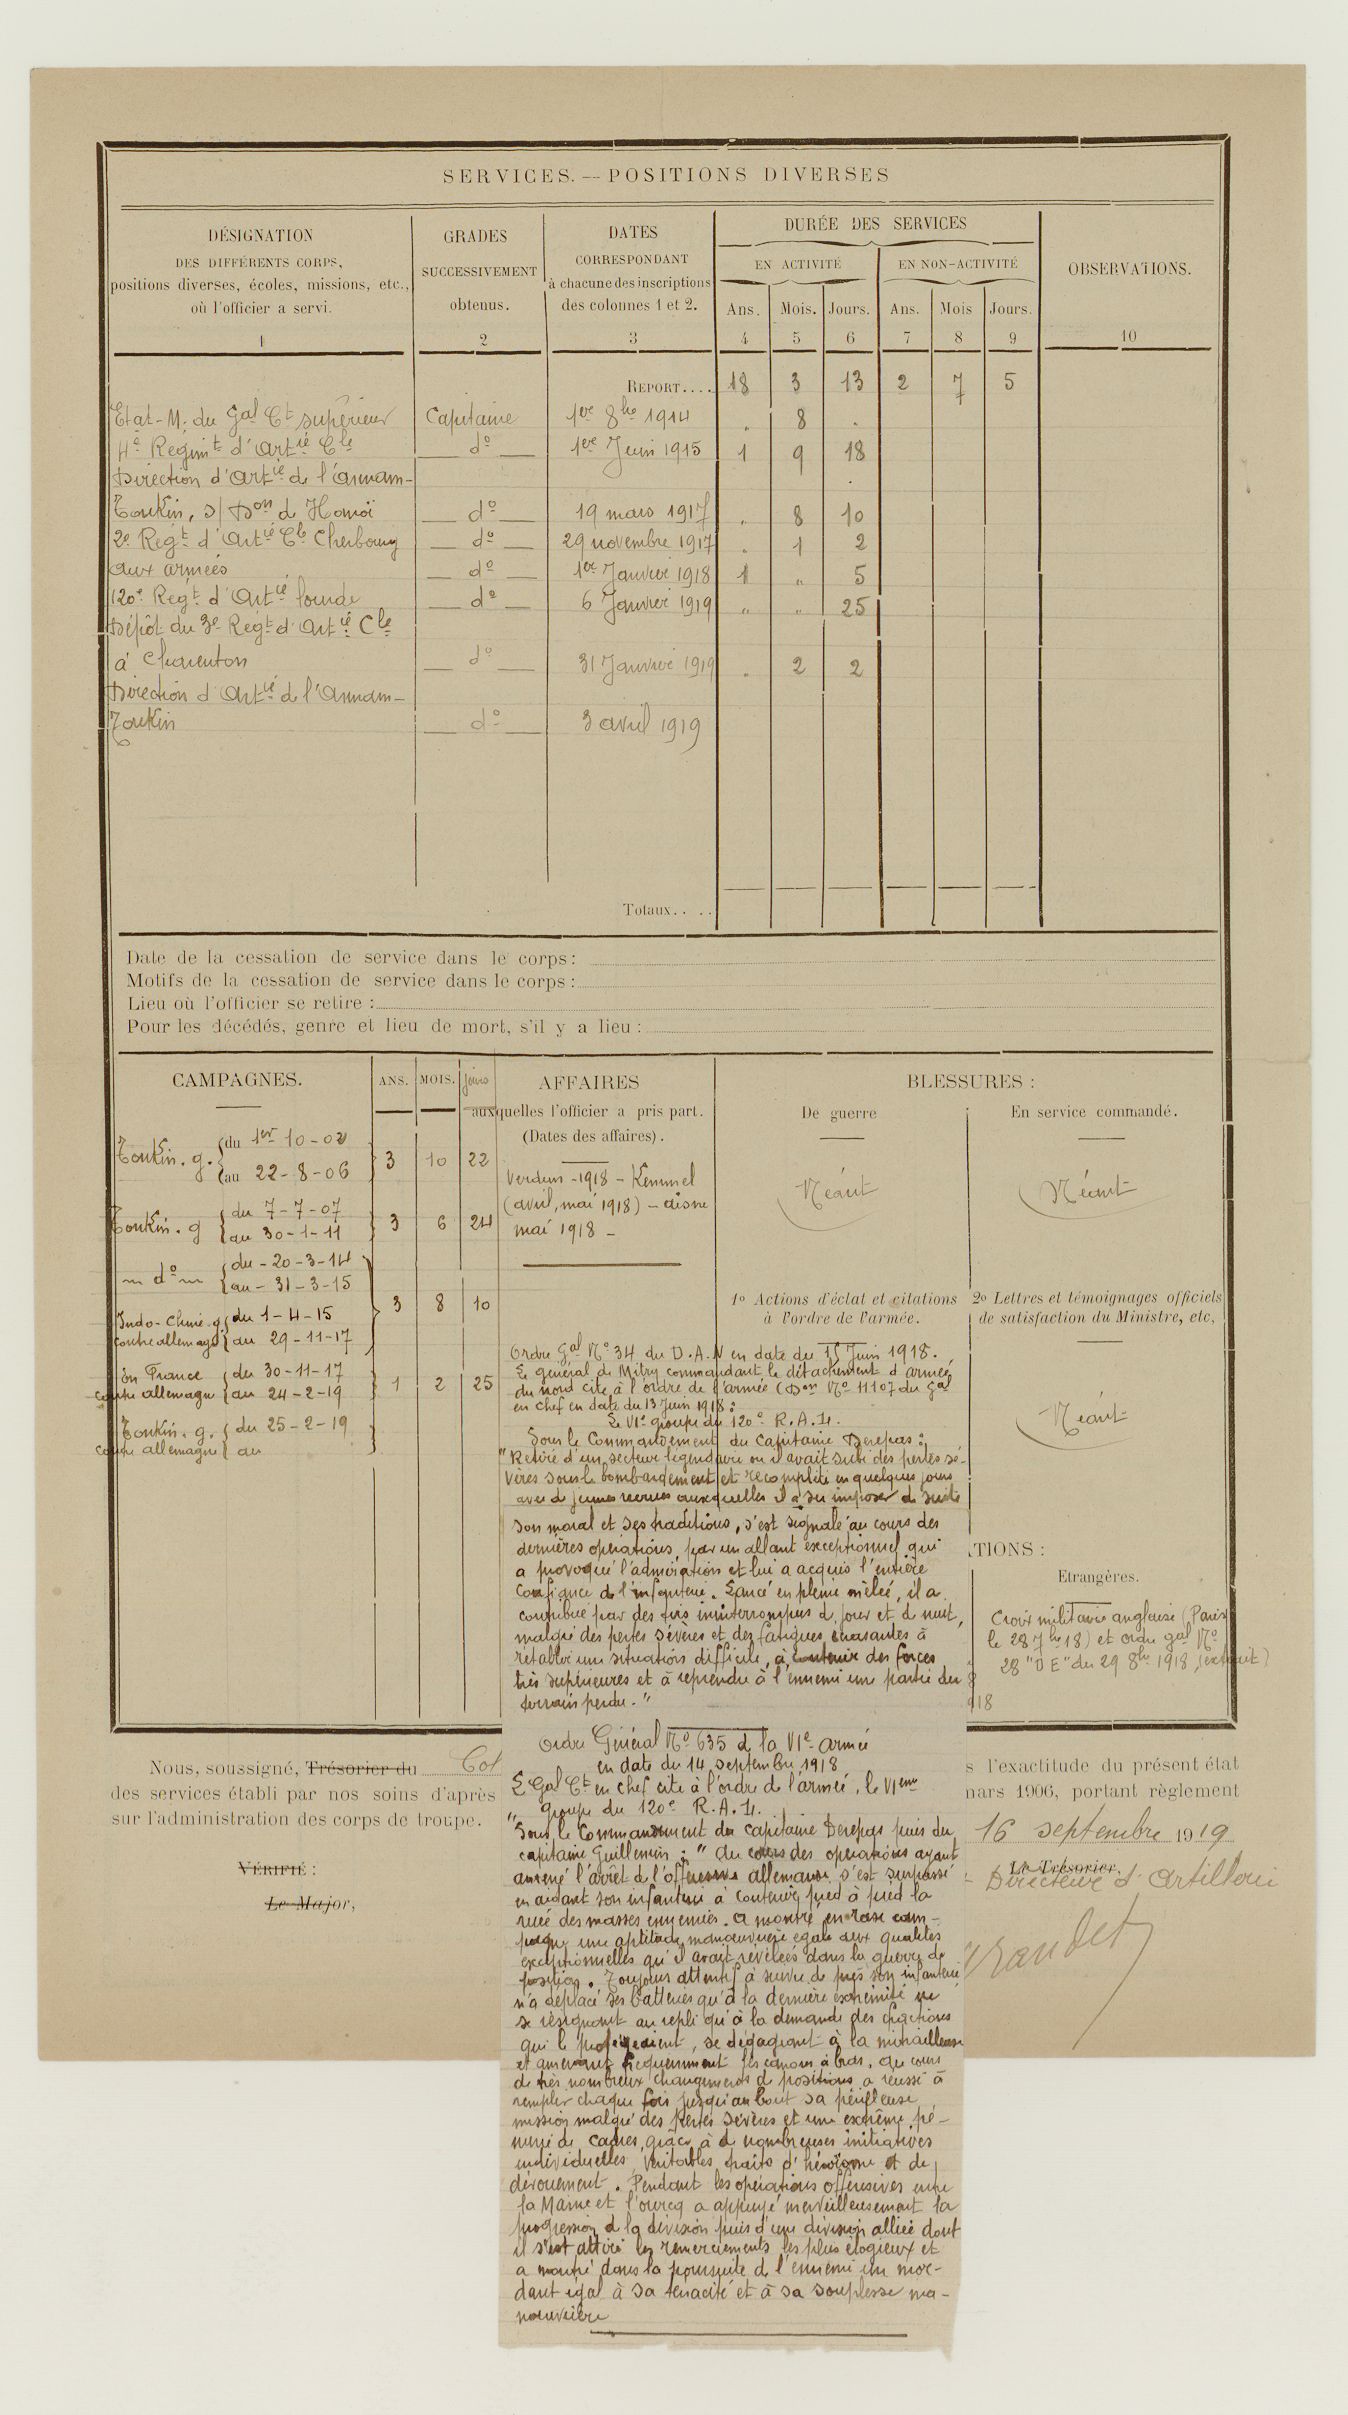 SERVICES. — POSITIONS DIVERSES
DÉSIGNATION
DES DIFFÉRENTS CORPS,
positions diverses, écoles, missions, etc.,
où l'officier a servi.
1
GRADES
SUCCESSIVEMENT
obtenus.
2
DATES
CORRESPONDANT
à chacune des inscriptions
des colonnes 1 et 2.
3
DURÉE DES SERVICES
EN ACTIVITÉ
EN NON-ACTIVITÉ
Ans. Mois. Jours. Ans. Mois Jours.
4 5 6 7 8 9
OBSERVATIONS.
10
REPORT.... 18 3 13 2 7 5
Etat-M. du Gal Ct supérieur Capitaine 1er 8bre 1914 " 8 .
4e Régimt d'Artie Cle do 1er Juin 1915 1 9 18
Direction d'Artie de l'Annam-
Tonkin, S/Don de Hanoï do 19 mars 1917 " 8 10
2e Régt d'Artie Cle Cherbourg do 29 novembre 1917 " 1 2
aux armées do 1er Janvier 1918 1 " 5
120e Régt d'Artie lourde do 6 Janvier 1919 " " 25
Dépôt du 3e Régt d'Artie Cle
à Charenton do 31 Janvier 1919 " 2 2
Direction d'Artie de l'Annam-
Tonkin do 3 avril 1919
Totaux....
Date de la cessation de service dans le corps :
Motifs de la cessation de service dans le corps :
Lieu où l'officier se retire :
Pour les décédés, genre et lieu de mort, s'il y a lieu :
CAMPAGNES. ANS. MOIS. jours
Tonkin. g. du 1er-10-02
au 22-8-06 3 10 22
Tonkin. g du 7-7-07
au 30-1-11 3 6 24
do du-20-3-14
au-31-3-15
Indo-Chine. g du 1-4-15
contre allemagne au 29-11-17 3 8 10
En France du 30-11-17
contre allemagne au 24-2-19 1 2 25
Tonkin. g. du 25-2-19
contre allemagne au
AFFAIRES
auxquelles l'officier a pris part.
(Dates des affaires).
Verdun-1918-Kemmel
(avril, mai 1918) - aisne
mai 1918 -
BLESSURES :
De guerre
Néant
En service commandé.
Néant
1o Actions d'éclat et citations
à l'ordre de l'armée.
2o Lettres et témoignages officiels
de satisfaction du Ministre, etc,
Néant
Ordre Gal No 34 du D.A.N en date du 15 Juin 1918.
Le général de Mitry commandant le détachement d'armée
du nord cite à l'ordre de l'armée (Don No 11107 du Gal
en chef en date du 13 Juin 1918 :
Le VIe groupe du 120e R.A.L.
Sous le Commandement du Capitaine Derepas :
"Retiré d'un secteur légendaire où il avait subi des pertes sé-
vères sous le bombardement et recomplété en quelques jours
avec de jeunes recrues auxquelles il a su imposer de suite
son moral et ses traditions, s'est signalé au cours des
dernières opérations, par un allant exceptionnel qui
a provoqué l'admiration et lui a acquis l'entière
Confiance de l'infanterie. Lancé en pleine mêlée, il a
contribué par des tirs ininterrompus de jour et de nuit,
malgré des pertes sévères et des fatigues écrasantes à
rétablir une situation difficile, à contenir des forces
très supérieures et à reprendre à l'ennemi une partie du
terrain perdu."
Ordre Général No 635 de la VIe armée
en date du 14 septembre 1918
Le Gal Ct en chef cite à l'ordre de l'armée, le VIeme
groupe du 120e R.A.L.
"Sous le Commandement du Capitaine Derepas puis du
capitaine Guillemin : "Au cours des opérations ayant
amené l'arrêt de l'offensive allemande s'est surpassé
en aidant son infanterie à contenir pied à pied la
ruée des masses ennemies. a montré en rase cam-
pagne une aptitude manœuvrière égale aux qualités
exceptionnelles qu'il avait révélées dans la guerre de
position. Toujours attentif à suivre de près son infanterie
n'a déplacé ses batteries qu'à la dernière extrémité ne
se résignant au repli qu'à la demande des fractions
qui le protégeaient, se dégageant à la mitrailleuse
et amenant fréquemment ses canons à bras. Au cours
de très nombreux changements de positions a réussi à
remplir chaque fois jusqu'au bout sa périlleuse
mission malgré des pertes sévères et une extrême pé-
nurie de cadres, grâce à de nombreuses initiatives
individuelles, véritables traits d'héroïsme et de
dévouement. Pendant les opérations offensives entre
la Marne et l'ourcq a appuyé merveilleusement la
progression de la division puis d'une division alliée dont
il s'est attiré les remerciements les plus élogieux et
a montré dans la poursuite de l'ennemi un mor-
dant égal à sa ténacité et à sa souplesse ma-
nœuvrière
ATIONS :
Etrangères.
Croix militaire anglaise (Paris
le 28 7bre 18) et ordre gal No
28 "DE" du 29 8bre 1918, (extrait)
918
Nous, soussigné, Trésorier du Col
des services établi par nos soins d'après
sur l'administration des corps de troupe.
s l'exactitude du présent état
mars 1906, portant règlement
16 septembre 1919
VÉRIFIÉ :
Le Major,
Le Trésorier,
Directeur d'Artillerie